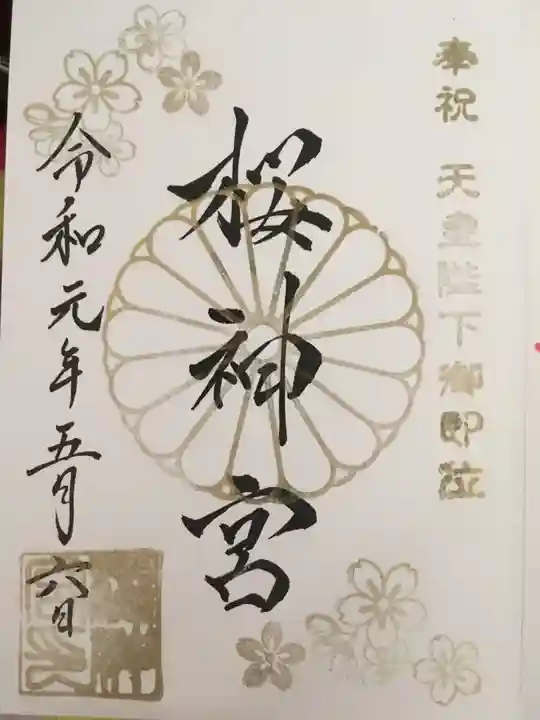 奉祝 天皇陛下御即位
桜神宮
令和元年五月六日